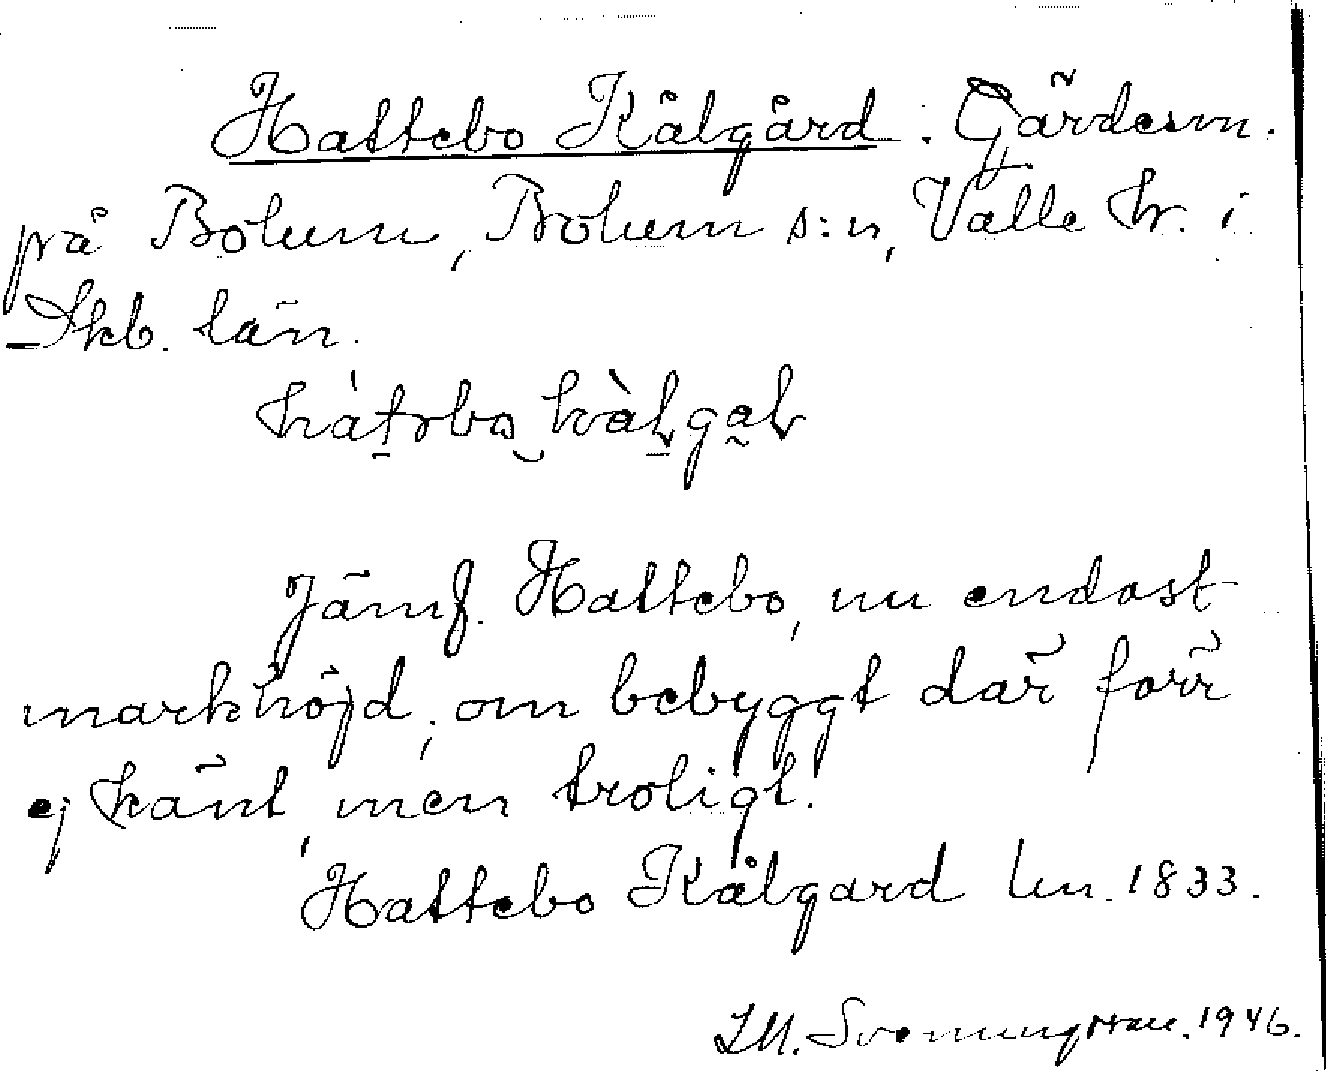 Hattebo Kålgård : Gärdesn.
på Bolum, Bolum s:n, Valle hr. i
Skb. län.
Jämf. Hattebo, nu endast
markhöjd; om bebyggt där förr
ej känt, men troligt.
Hattebo Kålgård lm. 1833.
1946.